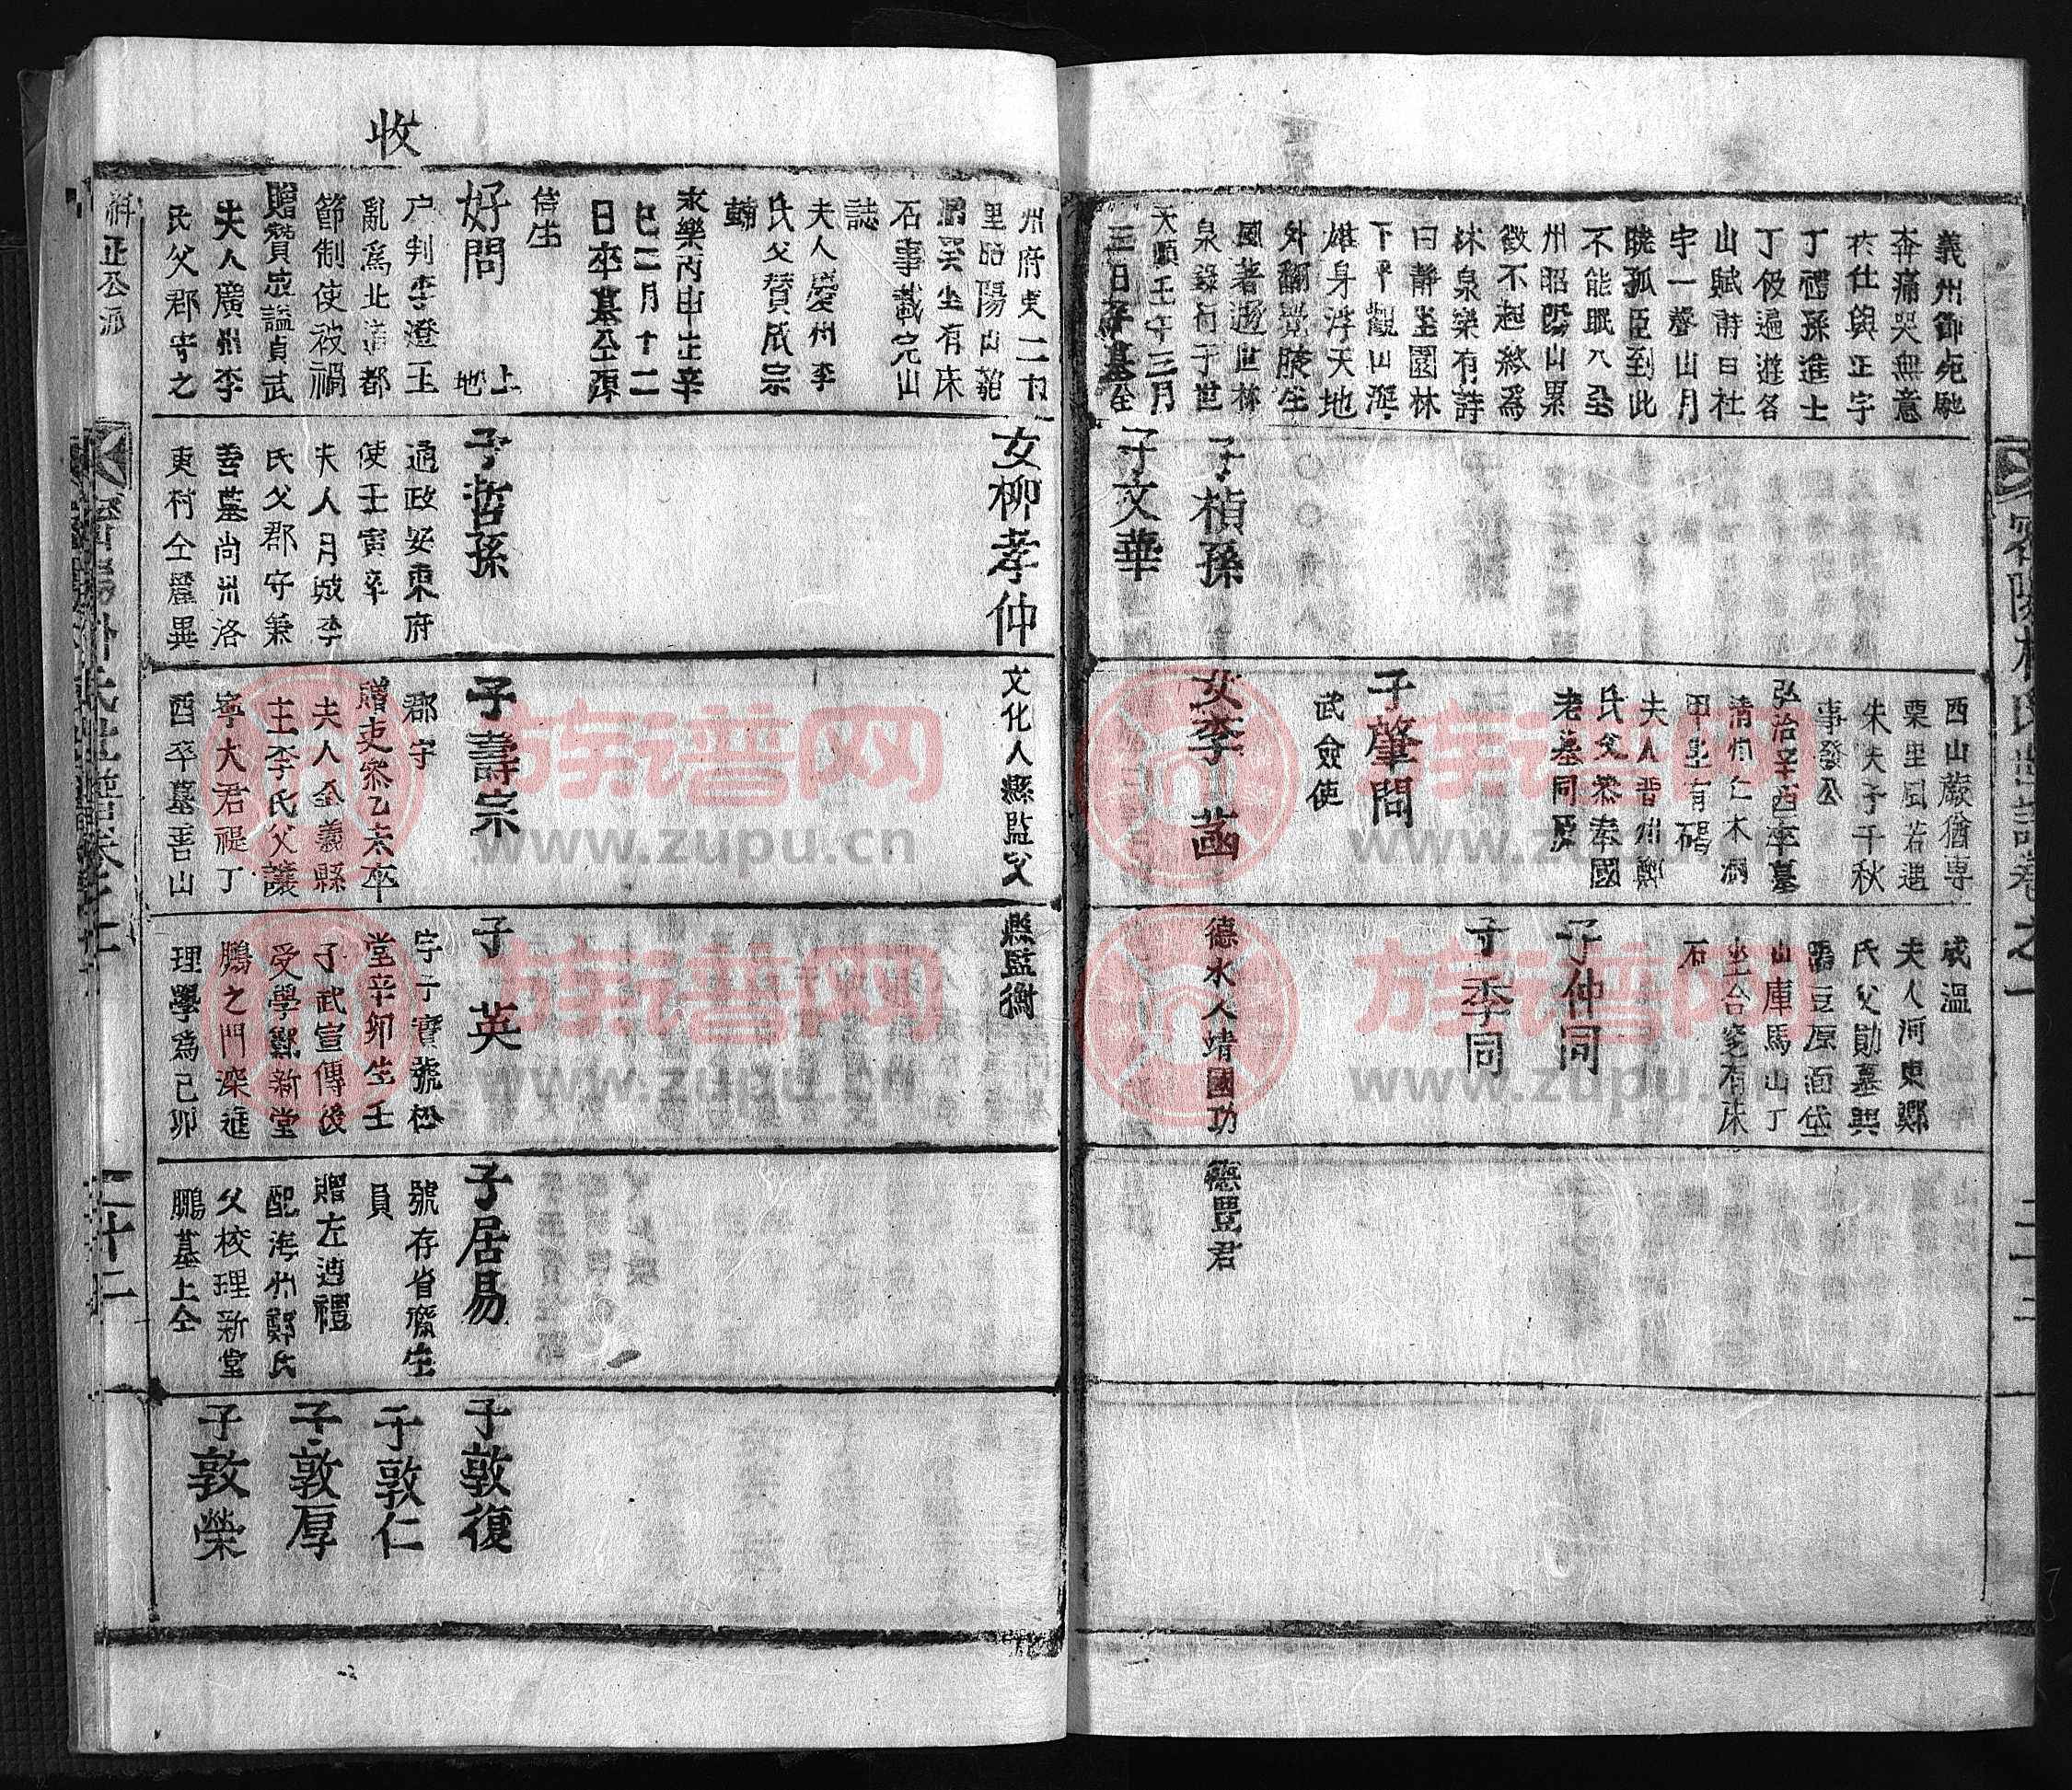 義州御苑馳
奔痛哭無意
於仕與正字
丁禮孫進士
丁伋遍遊各
山賦詩曰杜
宇一聲山月
曉孤臣到此
不能眠入全
州昭陽山累
徵不起終爲
林泉樂有詩
曰靜坐園林
下平觀山海
雄身浮天地
外翻覺朕生
國著遯世林
泉錄行于世
天順壬午三月
三日卒墓全
子楨孫
子文華
西山蕨猶專
栗里風若遇
朱夫子千秋
事發公
弘治辛酉卒墓
清州仁木洞
甲坐有碣
夫人晋州鄭
氏父恭奉國
老墓同原
子肇問
武僉使
女李 菡
咸溫
夫人河東鄭
氏父勛墓興
陽豆原面垈
山庫馬山丁
坐合窆有床
石
子仲同
子季同
德水人靖國功
德豊君
密陽朴氏世譜卷之一
二十二
收
州府東二十
里昭陽山
癸坐有床
石事載完山
誌
夫人慶州李
氏父賛成宗
翰
永樂丙申生辛
巳二月十二
日卒墓公源
信生
好問 上地
户判李澄玉
亂爲北道都
節制使被禍
贈賛成謚貞武
夫人廣州李
氏父郡守之
女柳孝仲
子哲孫
通政安東府
使壬寅卒
夫人月城李
氏父郡守兼
善墓尚州洛
東村仝麓異
文化人縣監父
子壽宗
郡守
贈吏叅乙未卒
夫人全義縣
主李氏父讓
寧大君禔丁
酉卒墓善山
縣監衡
子 英
字子寶號松
堂辛卯生壬
子武宣傳後
受學鄭新堂
鵬之門深進
理學爲己卯
子居易
號存省齋生
員
贈左通禮
配海州鄭氏
父校理新堂
鵬墓上仝
子敦復
子敦仁
子敦厚
子敦榮
糾正公派
二十二
族谱网
www.zupu.cn
族谱网
www.zupu.cn
族谱网
www.zupu.cn
族谱网
www.zupu.cn